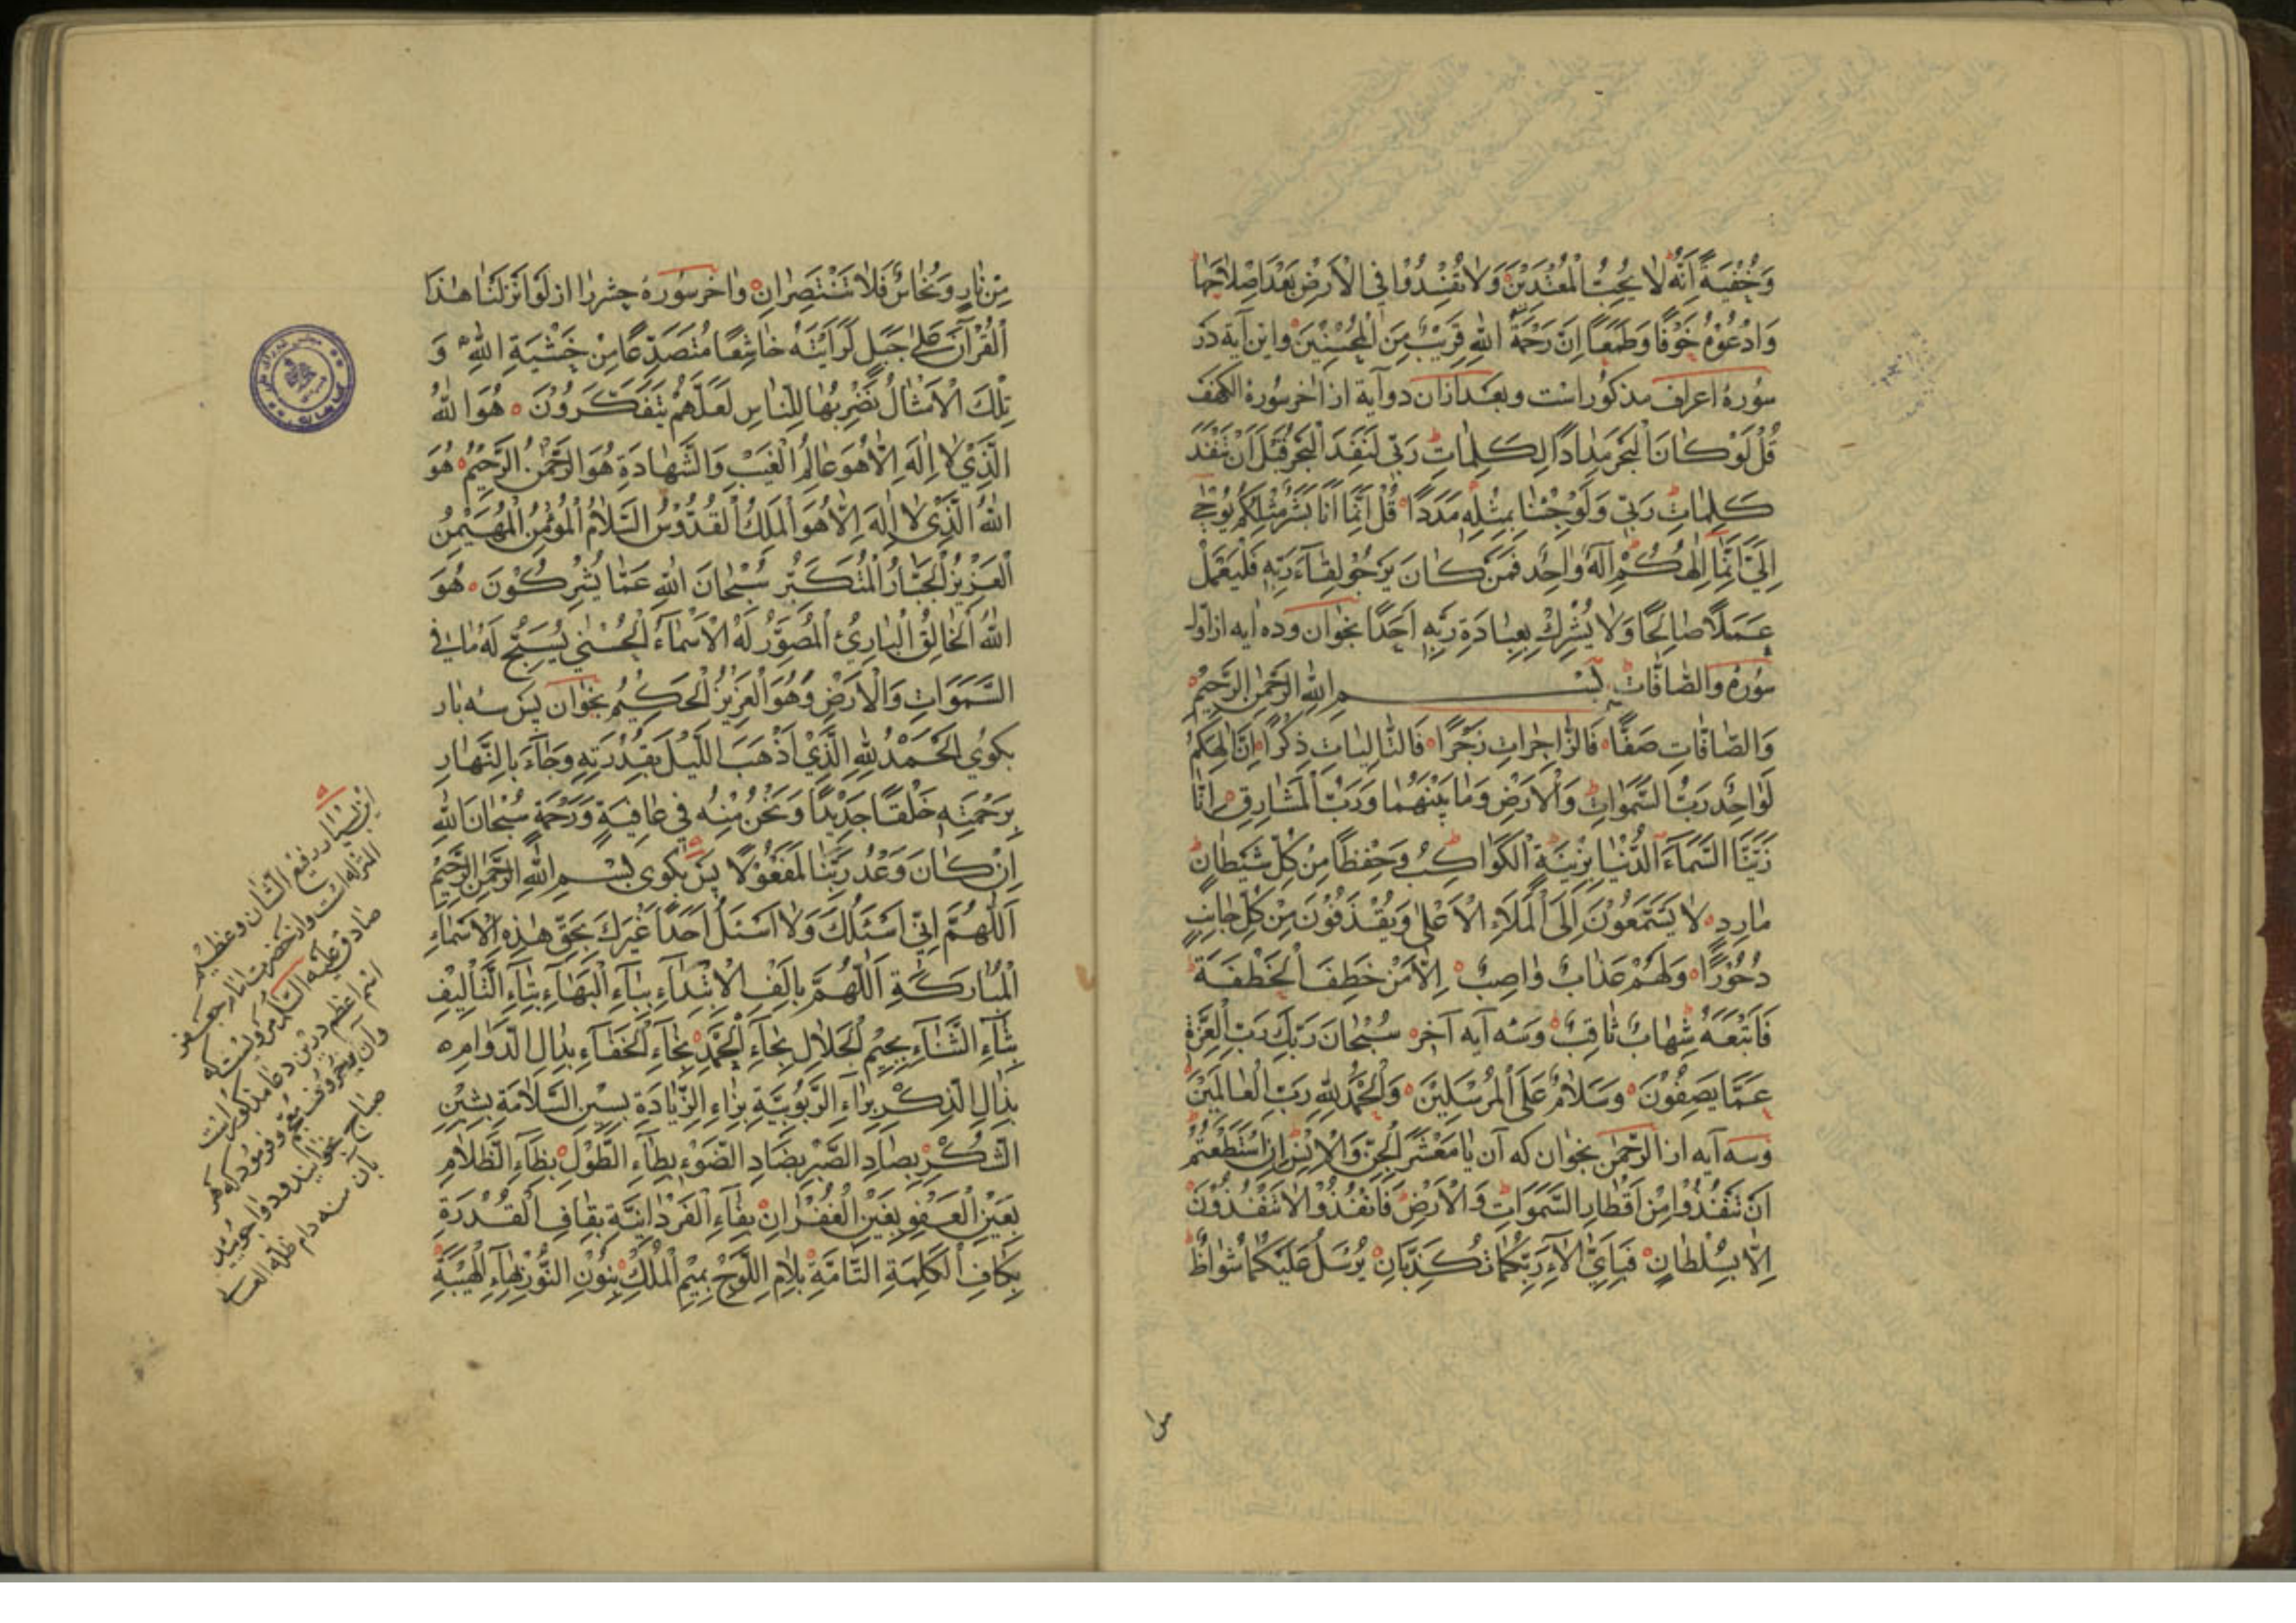 وَخُفْيَةً اِنَّهُ لَا يُحِبُّ الْمُعْتَدِيْنَ وَلَا تُفْسِدُوْا فِي الْاَرْضِ بَعْدَ اِصْلَاحِهَا
وَادْعُوْهُ خَوْفًا وَطَمَعًا اِنَّ رَحْمَةَ اللّٰهِ قَرِيْبٌ مِنَ الْمُحْسِنِيْنَ واين آية در
سُورهٔ اعراف مذكور است وبعد ازان دو آية از اٰخر سُورهٔ الكهف
قُلْ لَوْ كَانَ الْبَحْرُ مِدَادًا لِكَلِمَاتِ رَبِّي لَنَفِدَ الْبَحْرُ قَبْلَ اَنْ تَنْفَدَ
كَلِمَاتُ رَبِّي وَلَوْ جِئْنَا بِمِثْلِهِ مَدَدًا قُلْ اِنَّمَا اَنَا بَشَرٌ مِثْلُكُمْ يُوْحٰى
اِلَيَّ اَنَّمَا اِلٰهُكُمْ اِلٰهٌ وَاحِدٌ فَمَنْ كَانَ يَرْجُوْ لِقَآءَ رَبِّهِ فَلْيَعْمَلْ
عَمَلًا صَالِحًا وَلَا يُشْرِكْ بِعِبَادَةِ رَبِّهِ اَحَدًا بخوان وده ايه از اول
سُورهٔ والصّافّات بِسْمِ اللّٰهِ الرَّحْمٰنِ الرَّحِيْمِ
وَالصَّافَّاتِ صَفًّا فَالزَّاجِرَاتِ زَجْرًا فَالتَّالِيَاتِ ذِكْرًا اِنَّ اِلٰهَكُمْ
لَوَاحِدٌ رَبُّ السَّمٰوَاتِ وَالْاَرْضِ وَمَا بَيْنَهُمَا وَرَبُّ الْمَشَارِقِ اِنَّا
زَيَّنَّا السَّمَآءَ الدُّنْيَا بِزِيْنَةِ الْكَوَاكِبِ وَحِفْظًا مِنْ كُلِّ شَيْطَانٍ
مَارِدٍ لَا يَسَّمَّعُوْنَ اِلَى الْمَلَاءِ الْاَعْلٰى وَيُقْذَفُوْنَ مِنْ كُلِّ جَانِبٍ
دُحُوْرًا وَلَهُمْ عَذَابٌ وَاصِبٌ اِلَّا مَنْ خَطِفَ الْخَطْفَةَ
فَاَتْبَعَهُ شِهَابٌ ثَاقِبٌ وسه آيه آخر سُبْحَانَ رَبِّكَ رَبِّ الْعِزَّةِ
عَمَّا يَصِفُوْنَ وَسَلَامٌ عَلَى الْمُرْسَلِيْنَ وَالْحَمْدُ لِلّٰهِ رَبِّ الْعَالَمِيْنَ
وسه آيه از الرّحمن بخوان كه آن يَا مَعْشَرَ الْجِنِّ وَالْاِنْسِ اِنِ اسْتَطَعْتُمْ
اَنْ تَنْفُذُوْا مِنْ اَقْطَارِ السَّمٰوَاتِ وَالْاَرْضِ فَانْفُذُوْا لَا تَنْفُذُوْنَ
اِلَّا بِسُلْطَانٍ فَبِاَيِّ اٰلَآءِ رَبِّكُمَا تُكَذِّبَانِ يُرْسَلُ عَلَيْكُمَا شُوَاظٌ
مِنْ نَارٍ وَنُحَاسٌ فَلَا تَنْتَصِرَانِ واٰخر سُورهٔ حشر را از لَوْ اَنْزَلْنَا هٰذَا
الْقُرْآنَ عَلٰى جَبَلٍ لَرَاَيْتَهُ خَاشِعًا مُتَصَدِّعًا مِنْ خَشْيَةِ اللّٰهِ وَ
تِلْكَ الْاَمْثَالُ نَضْرِبُهَا لِلنَّاسِ لَعَلَّهُمْ يَتَفَكَّرُوْنَ هُوَ اللّٰهُ
الَّذِيْ لَا اِلٰهَ اِلَّا هُوَ عَالِمُ الْغَيْبِ وَالشَّهَادَةِ هُوَ الرَّحْمٰنُ الرَّحِيْمُ هُوَ
اللّٰهُ الَّذِيْ لَا اِلٰهَ اِلَّا هُوَ الْمَلِكُ الْقُدُّوْسُ السَّلَامُ الْمُؤْمِنُ الْمُهَيْمِنُ
الْعَزِيْزُ الْجَبَّارُ الْمُتَكَبِّرُ سُبْحَانَ اللّٰهِ عَمَّا يُشْرِكُوْنَ هُوَ
اللّٰهُ الْخَالِقُ الْبَارِئُ الْمُصَوِّرُ لَهُ الْاَسْمَآءُ الْحُسْنٰى يُسَبِّحُ لَهُ مَا فِي
السَّمٰوَاتِ وَالْاَرْضِ وَهُوَ الْعَزِيْزُ الْحَكِيْمُ بخوان پس سه بار
بكوي اَلْحَمْدُ لِلّٰهِ الَّذِيْ اَذْهَبَ اللَّيْلَ بِقُدْرَتِهِ وَجَآءَ بِالنَّهَارِ
بِرَحْمَتِهِ خَلْقًا جَدِيْدًا وَنَحْنُ مِنْهُ فِي عَافِيَةٍ وَرَحْمَةٍ سُبْحَانَ اللّٰهِ
اِنْ كَانَ وَعْدُ رَبِّنَا لَمَفْعُوْلًا پس بكوى بِسْمِ اللّٰهِ الرَّحْمٰنِ الرَّحِيْمِ
اَللّٰهُمَّ اِنِّي اَسْئَلُكَ وَلَا اَسْئَلُ اَحَدًا غَيْرَكَ بِحَقِّ هٰذِهِ الْاَسْمَآءِ
الْمُبَارَكَةِ اَللّٰهُمَّ بِاَلِفِ الْاِبْتِدَآءِ بِبَآءِ الْبَهَآءِ بِتَآءِ التَّاْلِيْفِ
بِثَآءِ الثَّنَآءِ بِجِيْمِ الْجَلَالِ بِحَآءِ الْحَمْدِ بِخَآءِ الْخَفَآءِ بِدَالِ الدَّوَامِ
بِذَالِ الذِّكْرِ بِرَآءِ الرُّبُوْبِيَّةِ بِزَاءِ الزِّيَادَةِ بِسِيْنِ السَّلَامَةِ بِشِيْنِ
الشُّكْرِ بِصَادِ الصَّبْرِ بِضَادِ الضَّوْءِ بِطَآءِ الطَّوْلِ بِظَآءِ الظَّلَامِ
بِعَيْنِ الْعَفْوِ بِغَيْنِ الْغُفْرَانِ بِفَآءِ الْفَرْدَانِيَّةِ بِقَافِ الْقُدْرَةِ
بِكَافِ الْكَلِمَةِ التَّامَّةِ بِلَامِ اللَّوْحِ بِمِيْمِ الْمُلْكِ بِنُوْنِ النُّوْرِ بِهَآءِ الْهَيْبَةِ
اين بسيار رفيع الشان وعظيم
المنزله است واز حضرت امام جعفر
صادق عليه السّلام مرويست كه
اسم اعظم درين دعا مذكور است
صباح بخوانيد
بآن منه دام ظله